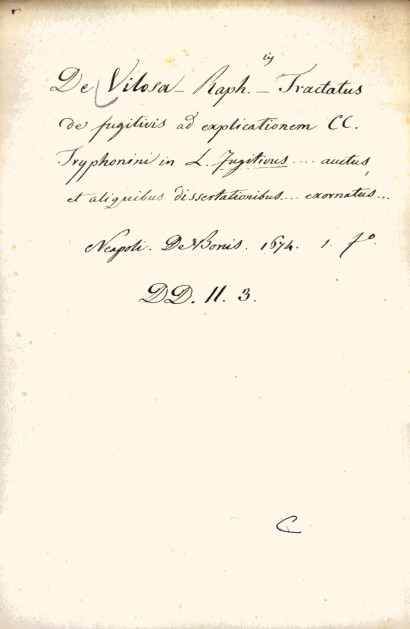 De Vilosa - Raph.is - Tractatus
de fugitivis ad explicationem CC.
Tryphonini in L. Fugitivus .... auctus,
et aliquibus dissertationibus... exornatus...
Neapoli. De Bonis. 1674. 1. fo.
DD. 11. 3.
C